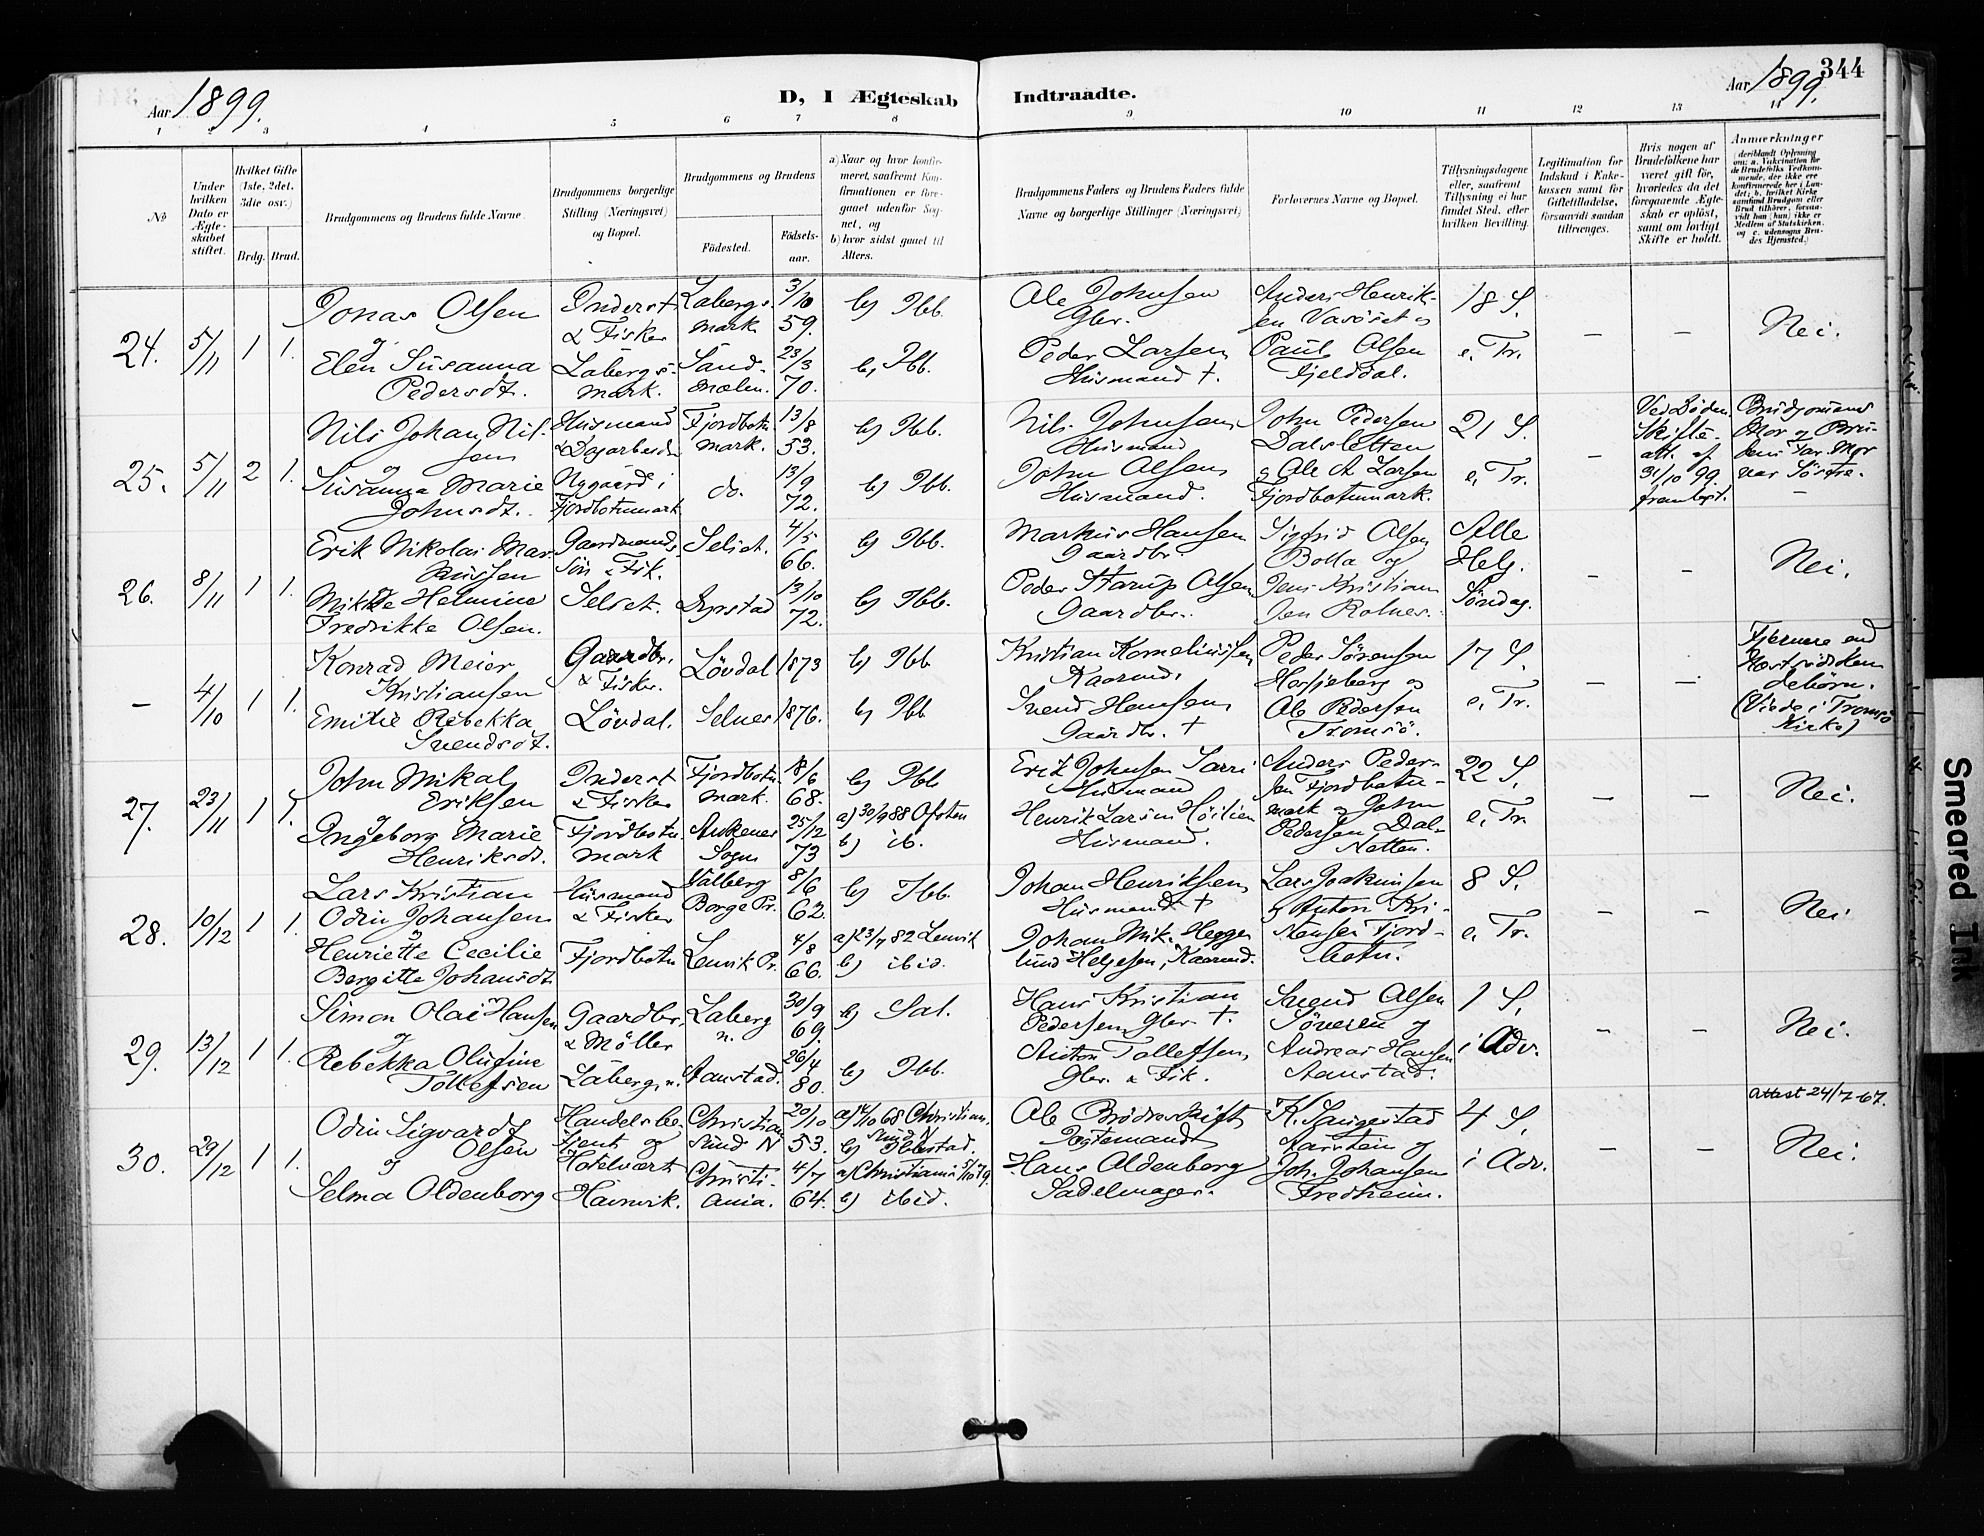 344
Aar 1899.
D, I Ægteskab Indtraadte.
Aar 1899.
1 2 3 4 5 6 7 8 9 10 11 12 13 14
No
Under hvilken Dato er Ægteskabet stiftet.
Hvilket Gifte (1ste, 2det. 3die osv.)
Brdg. Brud.
Brudgommens og Brudens fulde Navne.
Brudgommens borgerlige Stilling (Næringsvei) og Bopæl.
Brudgommens og Brudens
Födested.
Födsels-aar.
a) Naar og hvor konfirmeret, saafremt Konfirmationen er foregaaet udenfor Sognet, og
b) hvor sidst gaaet til Alters.
Brudgommens Faders og Brudens Faders fulde Navne og borgerlige Stillinger (Næringsvei)
Forlovernes Navne og Bopæl.
Tillysningsdagene eller, saafremt Tillysning ei har fundet Sted, efter hvilken Bevilling.
Legitimation for Indskud i Enkekassen samt for Giftetilladelse, forsaavidt saadan tiltrænges.
Hvis nogen af Brudefolkene har været gift för, hvorledes da det foregaaende Ægteskab er oplöst, samt om lovligt Skifte er holdt.
Anmærkninger
(deriblandt Oplysning om: a. Vakcination for de Brudefolks Vedkommende, der ikke ere konfirmerede her i Landet; b. hvilket Kirkesamfund Brudgom eller Brud tilhörer, forsaavidt han (hun) ikke er Medlem af Statskirken, og c. udensogns Brudes Hjemsted.)
24. 5/11 1 1.
Jonas Olsen
og
Elen Susanna
Pedersdt.
Inderst
& Fisker
Labergs-
mark.
Labergs-
mark
Sand-
mælen.
3/10
59.
23/3
70.
b) Ibb.
b, Ibb.
Ole Johnsen
Gbr.
Peder Larsen
Husmand †.
Anders Henrik-
sen Vasöset og
Paul Olsen
Fjelddal.
18 S.
e. Tr.
–
–
Nei.
25. 5/11 2 1.
Nils Johan Nil-
sen
og
Susanna Marie
Johnsdt.
Husmand
& Dagarbeider
Nygaard i
Fjordbotnmark
Fjordbotn
mark.
do.
13/8
53.
13/9
72.
b) Ibb.
b) Ibb.
Nils Johnsen
Husmand
John Olsen
Husmand.
John Pedersen
Dalsletten
og Ole A Larsen
Fjordbotnmark.
21 S.
e. Tr.
–
Ved Döden
Skifte-
att. af
31/10 99.
fremlagt.
Brudgomens
Mor og Bru-
dens Far. Mor
var Söstre.
–
26. 8/11 1 1.
Erik Nikolai Mar
kussen
Mikke Helmine
Fredrikke Olsen.
Gaardmands
Sön & Fisk.
Selset.
Selset.
Lysstad
4/5
66.
13/10
72.
b) Ibb.
b) Ibb.
Markus Hansen
Gaardbr.
Peder Starup Olsen
Gaardbr.
Sigfrid Olsen
Bolla og
Jens Kristian
sen Rolnes.
Alle
Helg.
Söndag.
–
–
Nei.
– 4/10 1 1.
Konrad Meier
Kristiansen
Emilie Rebekka
Svendsdt.
Gaardbr.
& Fisker.
Lövdal.
Lövdal
Selnes
1873
1876.
b) Ibb
b) Ibb
Kristian Kornelinssen
Kaarmd.
Svend Hansen
Gaardbr. †
Peder Sörensen
Hesjeberg og
Ole Pedersen
Tromsö.
17 S.
e. Tr.
–
–
Fjernere end
Söskende
börn.
(Viede i Tromsö
Kirke)
27. 23/11 1 1.
John Mikal
Eriksen
og
Ingeborg Marie
Henriksdt.
Inderst
& Fisker
Fjordbotn
mark
Fjordbotn
mark.
Ankenes
Sogn
18/6
68.
25/12
73
b) Ibb
a) 30/9 88 Ofoten
b) ib.
Erik Johnsen Sarri
Husmand
Henrik Larsen
Husmand.
Anders Peder-
sen Fjordbotn-
mark og John
Pedersen Dal-
sletten.
22 S.
e. Tr.
–
–
Nei.
28. 10/12 1 1.
Lars Kristian
Odin Johansen
og
Henriette Cecilie
Bergitte Johansdt.
Husmand
& Fisker
Fjordbotn
Valberg
Borge Pr.
Lenvik Pr.
8/6
62.
4/8
66.
b) Ibb.
a) 23/7 82 Lenvik
b) ibid.
Johan Henriksen
Husmand †
Johan Mik. Hegge
lund Helgesen, Kaarmd.
Lars Joakimsen
og Anton Kri-
stensen Fjord-
botn.
8 S.
e. Tr.
–
–
Nei
29. 13/12 1 1.
Simon Olai Hansen
og
Rebekka Olufine
Tollefsen
Gaardbr.
& Möller
Laberg, n.
Laberg
n.
Aanstad.
30/9
69.
26/4
80.
b) Sal.
b) Ibb.
Hans Kristian
Pedersen Gbr. †.
Anton Tollefsen
Gbr. & Fisk.
Svend Olsen
og
Andreas Hansen
Aanstad.
1 S.
i Adv.
–
–
Nei.
30. 29/12 1 1.
Odin Sigvardt
Olsen
og
Selma Oldenborg
Handelsbe-
tjent og
Hotelvært
Havnvik.
Christian
sund N
Christi-
ania.
20/10
53.
4/7
64.
a) 4/10 68 Christian.
sund N
b) Ibbestad.
a) Christiania 5/10 79.
b) ibid.
Ole Brödreskift
Hans Oldenborg
Sadelmager.
K. Saugestad
Aarstein og
Joh. Johansen
Fredheim.
4 S.
i Adv.
–
–
attest 24/7-67.
Nei.
Smeared Ink